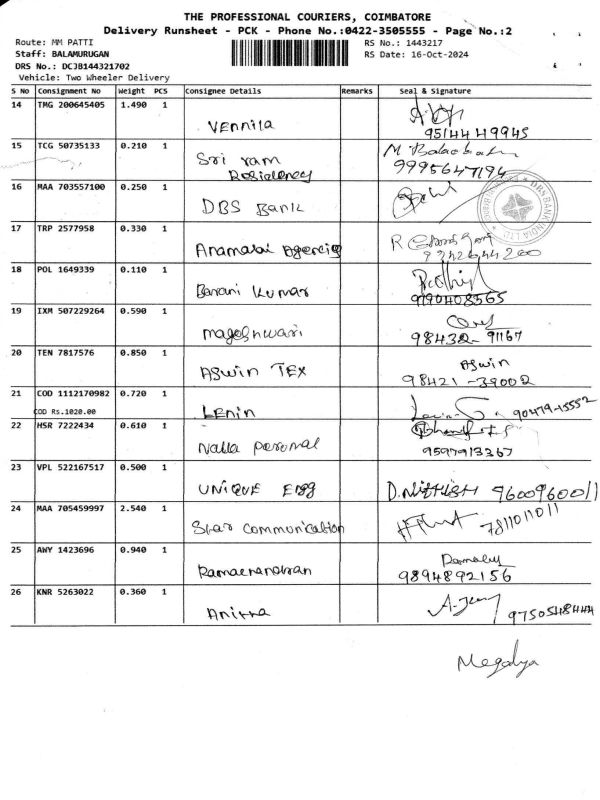 THE PROFESSIONAL COURIERS, COIMBATORE
Delivery Runsheet - PCK - Phone No.:0422-3505555 - Page No.:2
Route: MM PATTI
RS No.: 1443217
Staff: BALAMURUGAN
RS Date: 16-Oct-2024
DRS No.: DCJB144321702
Vehicle: Two Wheeler Delivery
S No Consignment No Weight PCS Consignee Details Remarks Seal & Signature
14 TMG 200645405 1.490 1
Vennila
95144 49945
15 TCG 50735133 0.210 1
Sri ram
Residency
9995647194
16 MAA 703557100 0.250 1
DBS Bank
DBS BANK INDIA LTD
17 TRP 2577958 0.330 1
Anamalai Agencies
18 POL 1649339 0.110 1
Barani Kumar
9790408565
19 IXM 507229264 0.590 1
mageshwari
98432- 91167
20 TEN 7817576 0.850 1
Aswin TEX
Aswin
98421 -39002
21 COD 1112170982 0.720 1
COD Rs.1020.00
Lenin
90479-15552
22 HSR 7222434 0.610 1
Nalla perumal
9597913367
23 VPL 522167517 0.500 1
UNIQUE Engg
D.Nithish 9600960011
24 MAA 705459997 2.540 1
Star communication
7811011011
25 AWY 1423696 0.940 1
Ramachandran
9894892156
26 KNR 5263022 0.360 1
Anitha
9750548444